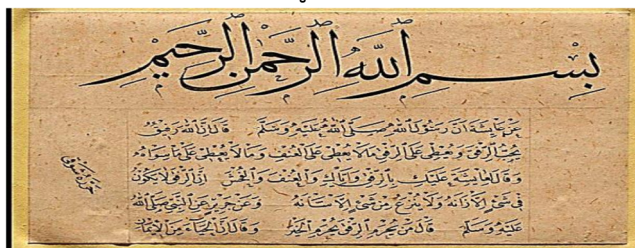 بِسْمِ اللّٰهِ الرَّحْمٰنِ الرَّحِيْمِ
عن عايشة ان رسول الله صلى الله عليه وسلم قال ان الله رفيق
يحب الرفق ويعطى على الرفق ما لا يعطى على العنف وما لا يعطى على ما سواه
وقال لعايشة عليك بالرفق واياك والعنف والفحش ان الرفق لا يكون
فى شئ الا زانه ولا ينزع من شئ الا شانه وعن جرير عن النبى صلى الله
عليه وسلم قال من يحرم الرفق يحرم الخير وقال ان الحياء من الايمان